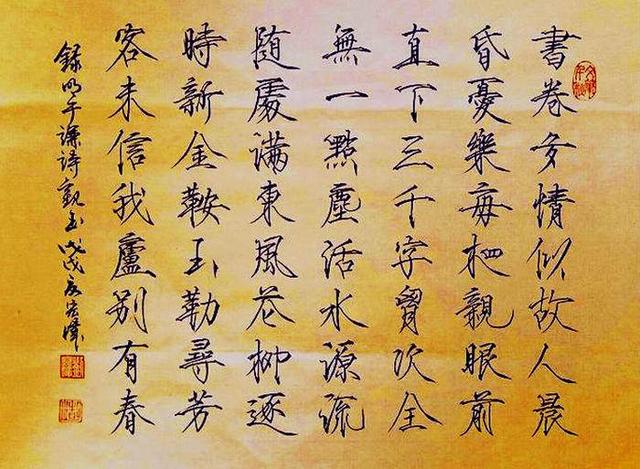 書卷多情似故人晨
昏憂樂每相親眼前
直下三千字胷次全
無一點塵活水源流
随處滿東風花柳逐
時新金鞍玉勒尋芳
客未信我廬別有春
錄明于謙詩觀书戊戌夏